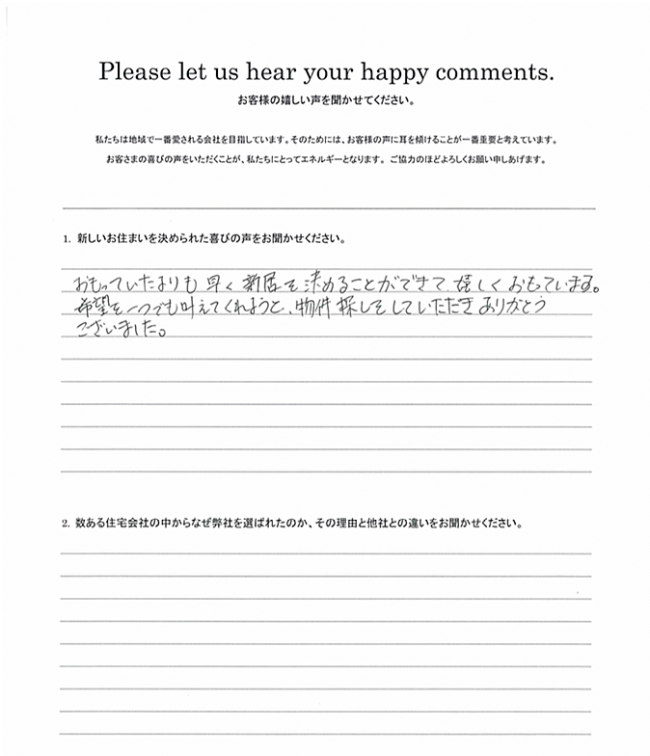 Please let us hear your happy comments.
お客様の嬉しい声を聞かせてください。
私たちは地域で一番愛される会社を目指しています。そのためには、お客様の声に耳を傾けることが一番重要と考えています。
お客さまの喜びの声をいただくことが、私たちにとってエネルギーとなります。ご協力のほどよろしくお願い申しあげます。
1. 新しいお住まいを決められた喜びの声をお聞かせください。
おもっていたよりも早く新居を決めることができて嬉しくおもっています。
希望を一つでも叶えてくれようと、物件探しをしていただきありがとう
ございました。
2. 数ある住宅会社の中からなぜ弊社を選ばれたのか、その理由と他社との違いをお聞かせください。